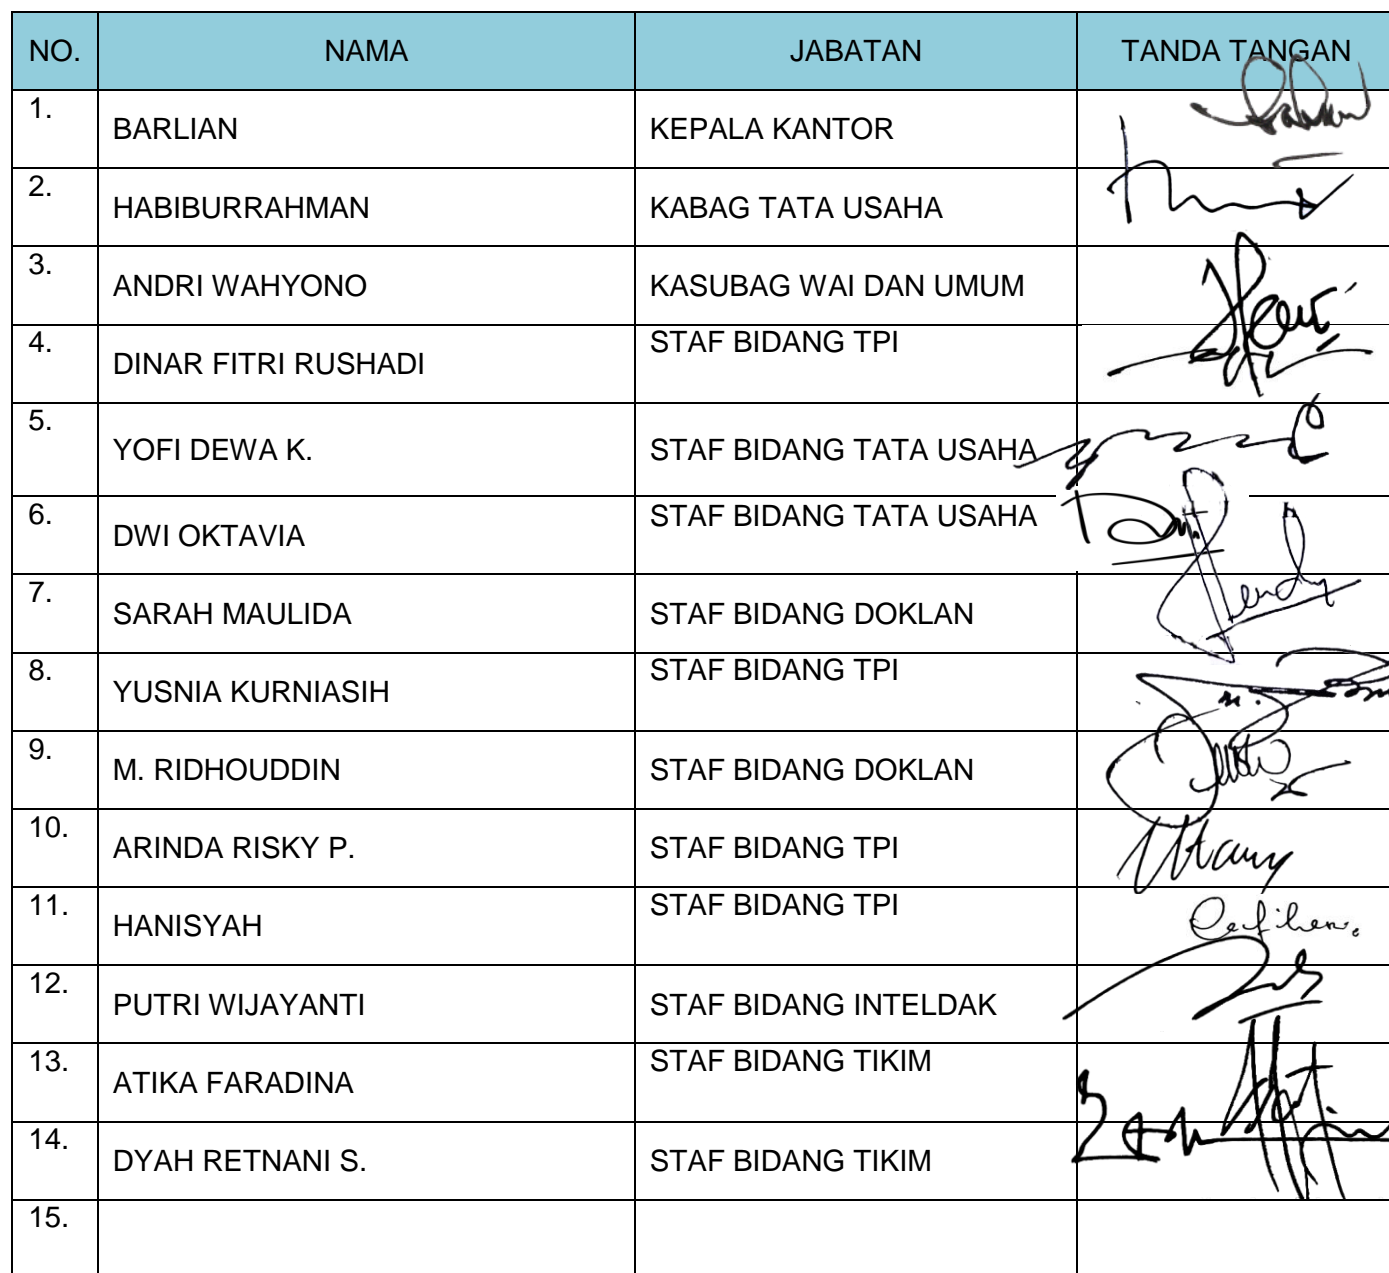 NO. NAMA JABATAN TANDA TANGAN
1. BARLIAN KEPALA KANTOR
2. HABIBURRAHMAN KABAG TATA USAHA
3. ANDRI WAHYONO KASUBAG WAI DAN UMUM
4. DINAR FITRI RUSHADI STAF BIDANG TPI
5. YOFI DEWA K. STAF BIDANG TATA USAHA
6. DWI OKTAVIA STAF BIDANG TATA USAHA
7. SARAH MAULIDA STAF BIDANG DOKLAN
8. YUSNIA KURNIASIH STAF BIDANG TPI
9. M. RIDHOUDDIN STAF BIDANG DOKLAN
10. ARINDA RISKY P. STAF BIDANG TPI
11. HANISYAH STAF BIDANG TPI
12. PUTRI WIJAYANTI STAF BIDANG INTELDAK
13. ATIKA FARADINA STAF BIDANG TIKIM
14. DYAH RETNANI S. STAF BIDANG TIKIM
15.